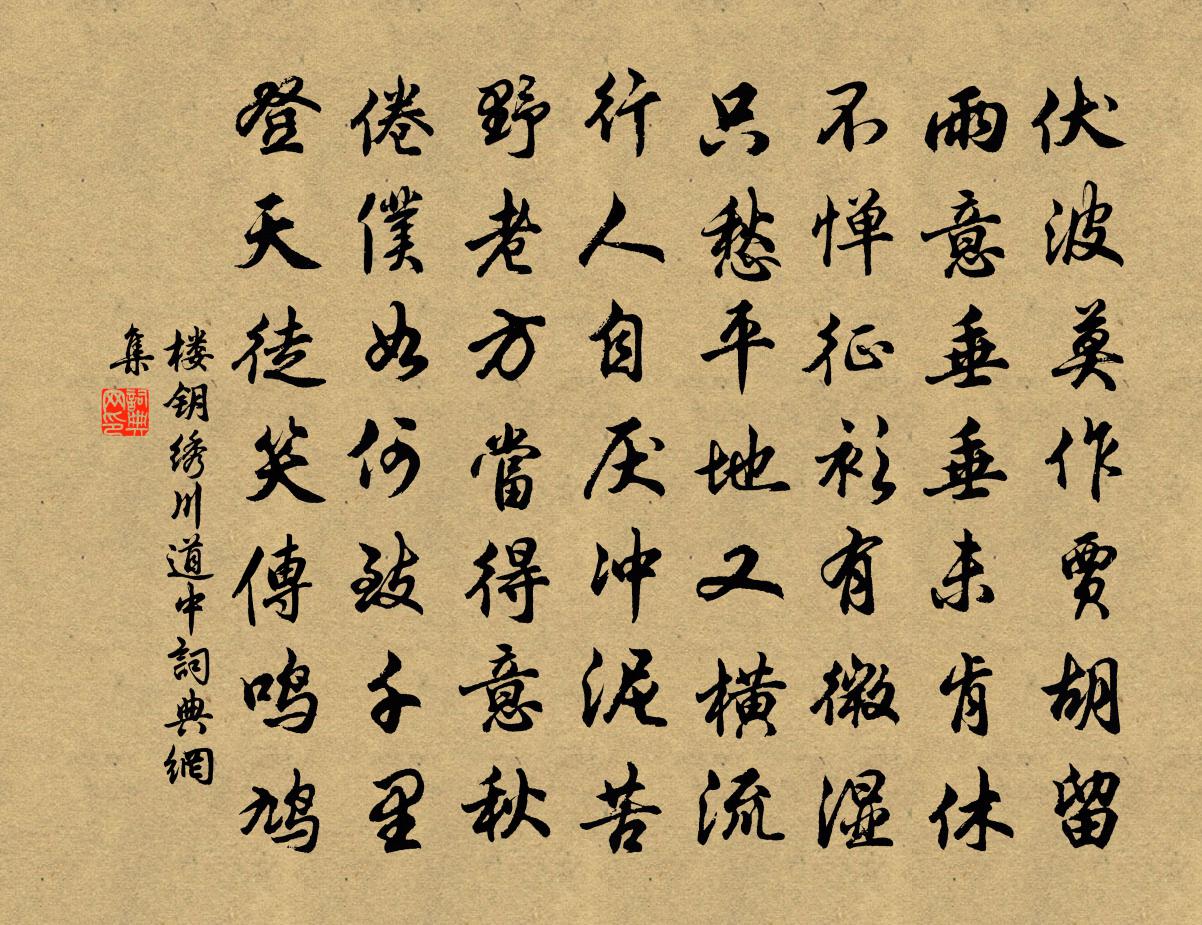 伏波莫作賈胡留
雨意垂垂未肯休
不惮征衫有微湿
只愁平地又横流
行人自厌冲泥苦
野老方當得意秋
倦僕如何致千里
登天徒笑傳鸣鸠
楼钥绣川道中詞典網
集
詞典
网印